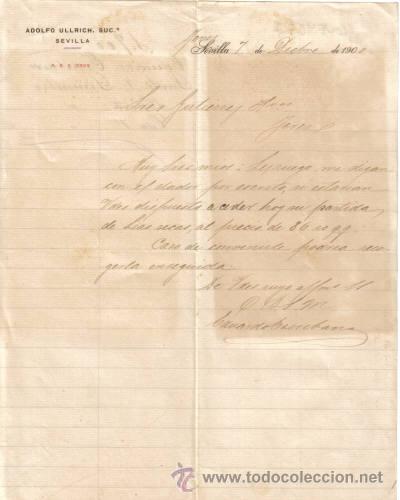 ADOLFO ULLRICH, SUC.ʳ
SEVILLA
Jerez
Sevilla 7 de Dicbre de 1900
Sres Gutierrez Hnos
Jerez
Muy Sres mios: Les ruego me digan
con el dador por escrito, si estarian
Vdes dispuesto a ceder hoy mi partida
de lias secas, al precio de 86
Caso de convenirle podria reco
gerla enseguida.
De Vdes muy affmo SS
Q B S M
todocoleccion
www.todocoleccion.net